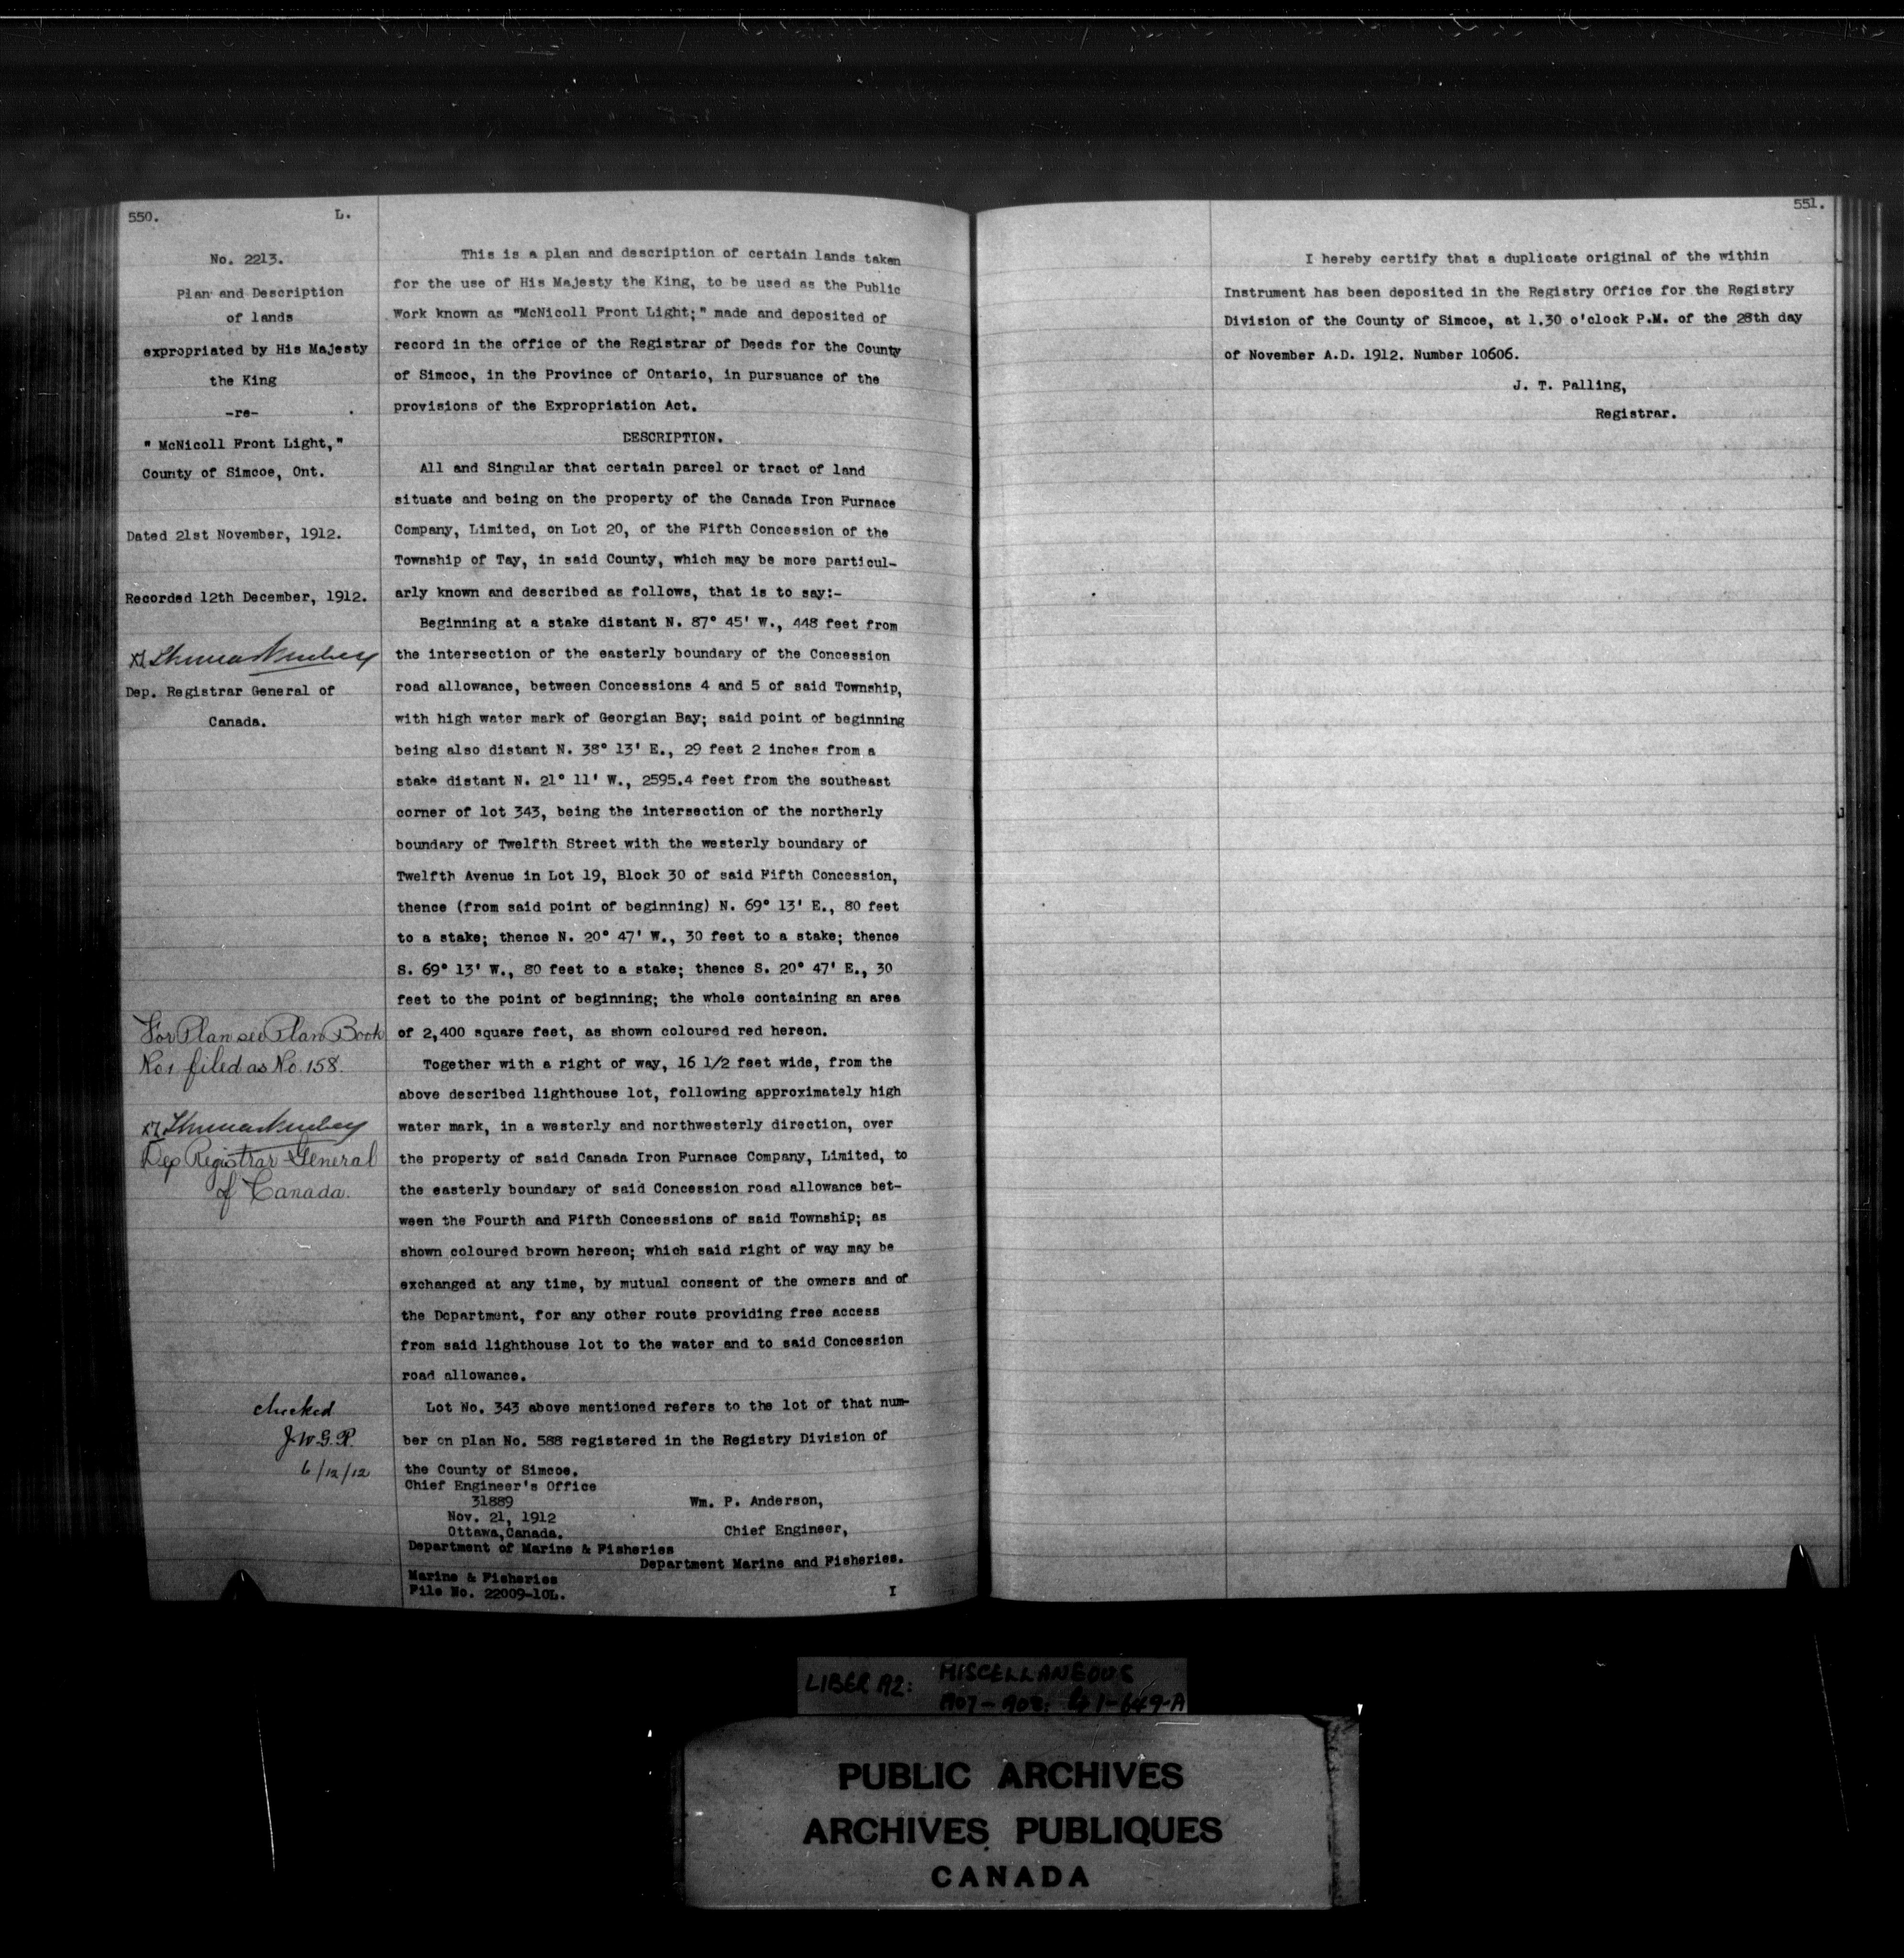 550.
L.
No. 2213.
Plan and Description
of lands
expropriated by His Majesty
the King
-re-
" McNicoll Front Light,"
County of Simcoe, Ont.
Dated 21st November, 1912.
Recorded 12th December, 1912.
Dep. Registrar General of
Canada.
For Plan see Plan Book
No 1 filed as No. 158.
Dep Registrar General
of Canada.
checked
J.W.G.P.
6/12/12
This is a plan and description of certain lands taken
for the use of His Majesty the King, to be used as the Public
Work known as "McNicoll Front Light;" made and deposited of
record in the office of the Registrar of Deeds for the County
of Simcoe, in the Province of Ontario, in pursuance of the
provisions of the Expropriation Act.
DESCRIPTION.
All and Singular that certain parcel or tract of land
situate and being on the property of the Canada Iron Furnace
Company, Limited, on Lot 20, of the Fifth Concession of the
Township of Tay, in said County, which may be more particul-
arly known and described as follows, that is to say:-
Beginning at a stake distant N. 87° 45' W., 448 feet from
the intersection of the easterly boundary of the Concession
road allowance, between Concessions 4 and 5 of said Township,
with high water mark of Georgian Bay; said point of beginning
being also distant N. 38° 13' E., 29 feet 2 inches from a
stake distant N. 21° 11' W., 2595.4 feet from the southeast
corner of lot 343, being the intersection of the northerly
boundary of Twelfth Street with the westerly boundary of
Twelfth Avenue in Lot 19, Block 30 of said Fifth Concession,
thence (from said point of beginning) N. 69° 13' E., 80 feet
to a stake; thence N. 20° 47' W., 30 feet to a stake; thence
S. 69° 13' W., 80 feet to a stake; thence S. 20° 47' E., 30
feet to the point of beginning; the whole containing an area
of 2,400 square feet, as shown coloured red hereon.
Together with a right of way, 16 1/2 feet wide, from the
above described lighthouse lot, following approximately high
water mark, in a westerly and northwesterly direction, over
the property of said Canada Iron Furnace Company, Limited, to
the easterly boundary of said Concession road allowance bet-
ween the Fourth and Fifth Concessions of said Township; as
shown coloured brown hereon; which said right of way may be
exchanged at any time, by mutual consent of the owners and of
the Department, for any other route providing free access
from said lighthouse lot to the water and to said Concession
road allowance.
Lot No. 343 above mentioned refers to the lot of that num-
ber on plan No. 588 registered in the Registry Division of
the County of Simcoe.
Chief Engineer's Office
31889
Nov. 21, 1912
Ottawa, Canada.
Department of Marine & Fisheries
Wm. P. Anderson,
Chief Engineer,
Department Marine and Fisheries.
Marine & Fisheries
File No. 22009-10L.
I
551.
I hereby certify that a duplicate original of the within
Instrument has been deposited in the Registry Office for the Registry
Division of the County of Simcoe, at 1.30 o'clock P.M. of the 28th day
of November A.D. 1912. Number 10606.
J. T. Palling,
Registrar.
LIBER 192: MISCELLANEOUS
1907-1908:
PUBLIC ARCHIVES
ARCHIVES PUBLIQUES
CANADA